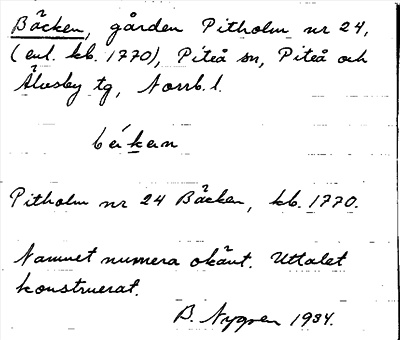 Bäcken, gården Pitholm nr 24,
(enl. kb. 1770), Piteå sn, Piteå och
Älvsby tg, Norrb. l.
békan
Pitholm nr 24 Bäcken, kb. 1770.
Namnet numera okänt. Uttalet
konstruerat.
B. Nygren 1934.